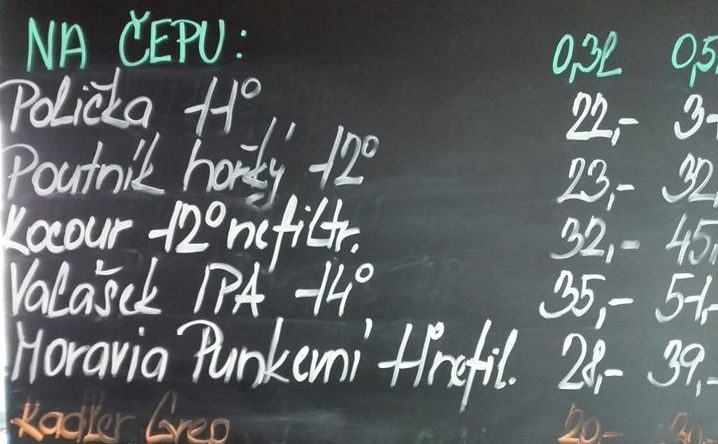 NA ČEPU: 0,3L 0,5
Polička 11° 22,- 3
Poutník hořký 12° 23,- 32,
Kocour 12° nefiltr. 32,- 45,
Valášek IPA 14° 35,- 51,-
Moravia Punkevní 11° nefil. 28,- 39,-
Grep 20,-